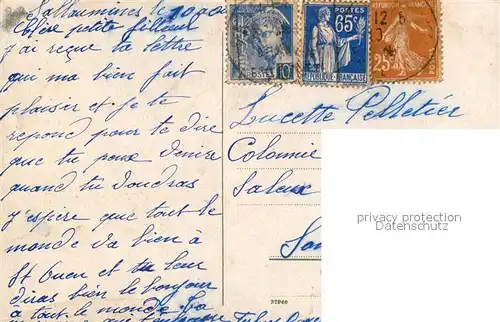 Sallaumines le 10 août
Chère petite filleul
j'ai reçue la lettre
qui ma bien fait
plaisir et je te
repond pour te dire
que tu peux venire
quand tu voudras
j'espère que tout le
monde va bien à
St Ouen et tu leur
diras bien le bonjour
à tout le monde
qui
POSTES
10
POSTES
65
REPUBLIQUE FRANÇAISE
25
12
Lucette Pelletier
Colonnie
Saleux
privacy protection
Datenschutz